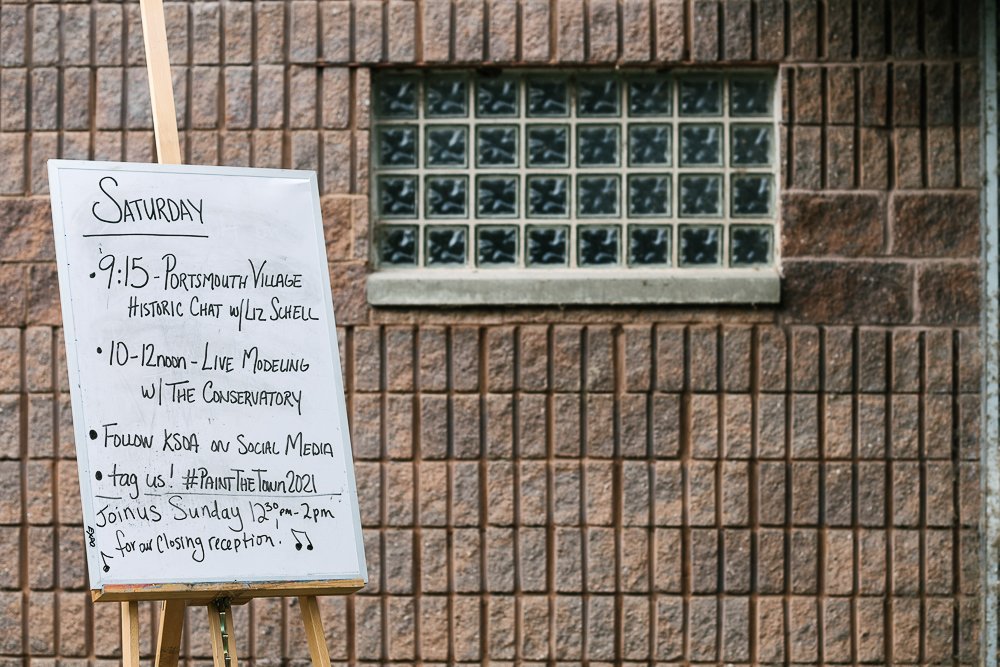 SATURDAY
• 9:15 - PORTSMOUTH VILLAGE
HISTORIC CHAT W/ LIZ SCHELL
• 10-12noon - LIVE MODELING
W/ THE CONSERVATORY
• FOLLOW KSOA ON SOCIAL MEDIA
• tag us! #PAINTTHETOWN2021
Join us Sunday 12:30pm-2pm
for our Closing reception.